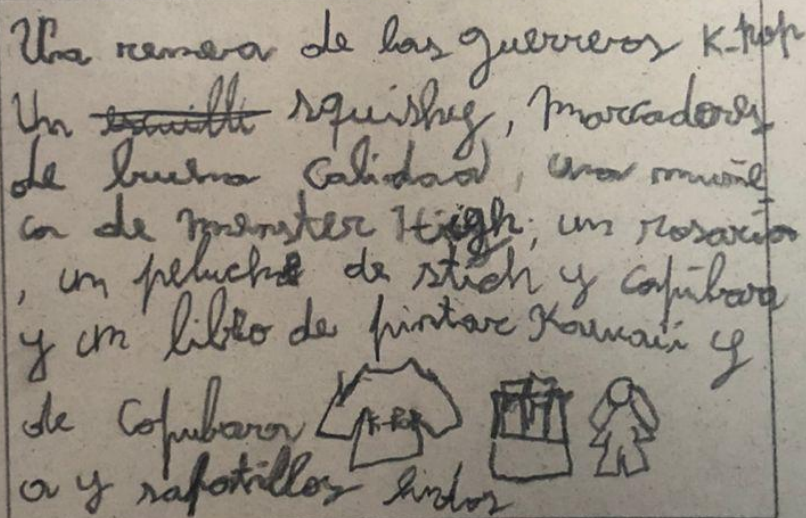 Una remera de las guerreros K-pop
Un squishy, marcadores
de buena calidad, una muñe
ca de monster High, un rosario
, un peluche de stich y capibara
y un libro de pintar Kawaii y
de Capibara K-POP
a y sapatillas lindas